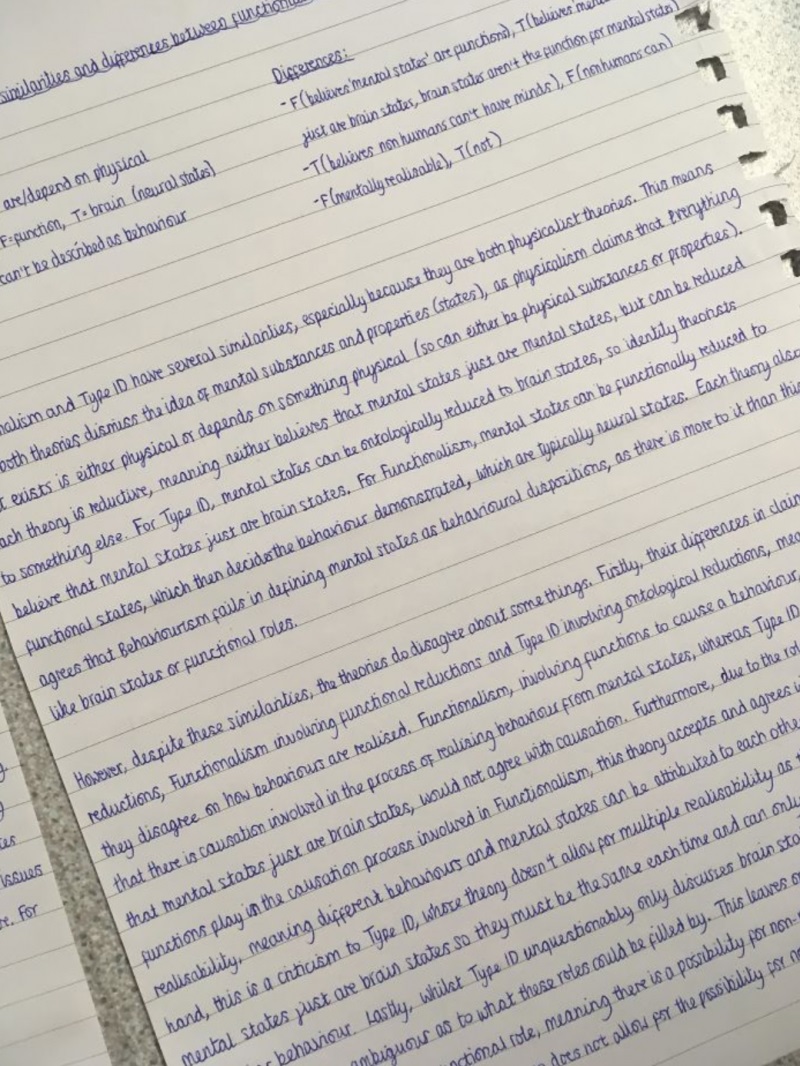 similarities and differences between functional
Differences:
-F(believes 'mental states' are functions), T(believes 'mental
just are brain states, brain states aren't the function for mental states)
-T(believes non humans can't have minds), F(nonhumans can)
-F(mentally realisable), T(not)
are/depend on physical
F=function, T=brain (neural states)
can't be described as behaviour
nalism and Type ID have several similarities, especially because they are both physicalist theories. This means
both theories dismiss the idea of mental substances and properties (states), as physicalism claims that everything
t exists is either physical or depends on something physical (so can either be physical substances or properties).
ach theory is reductive, meaning neither believes that mental states just are mental states, but can be reduced
to something else. For Type ID, mental states can be ontologically reduced to brain states, so identity theorists
believe that mental states just are brain states. For Functionalism, mental states can be functionally reduced to
functional states, which then decides the behaviour demonstrated, which are typically neural states. Each theory also
agrees that Behaviourism fails in defining mental states as behavioural dispositions, as there is more to it than this
like brain states or functional roles.
However, despite these similarities, the theories do disagree about some things. Firstly, their differences in claim
reductions, Functionalism involving functional reductions and Type ID involving ontological reductions, mea
they disagree on how behaviours are realised. Functionalism, involving functions to cause a behaviour,
that there is causation involved in the process of realising behaviour from mental states, whereas Type ID
that mental states just are brain states, would not agree with causation. Furthermore, due to the rol
functions play in the causation process involved in Functionalism, this theory accepts and agrees
realisability, meaning different behaviours and mental states can be attributed to each othe
hand, this is a criticism to Type ID, whose theory doesn't allow for multiple realisability as
mental states just are brain states so they must be the same each time and can only
behaviour. Lastly, whilst Type ID unquestionably only discusses brain sta
ambiguous as to what these roles could be filled by. This leaves o
nctional role, meaning there is a possibility for non-
does not allow for the possibility for no
tes
issues
re. For